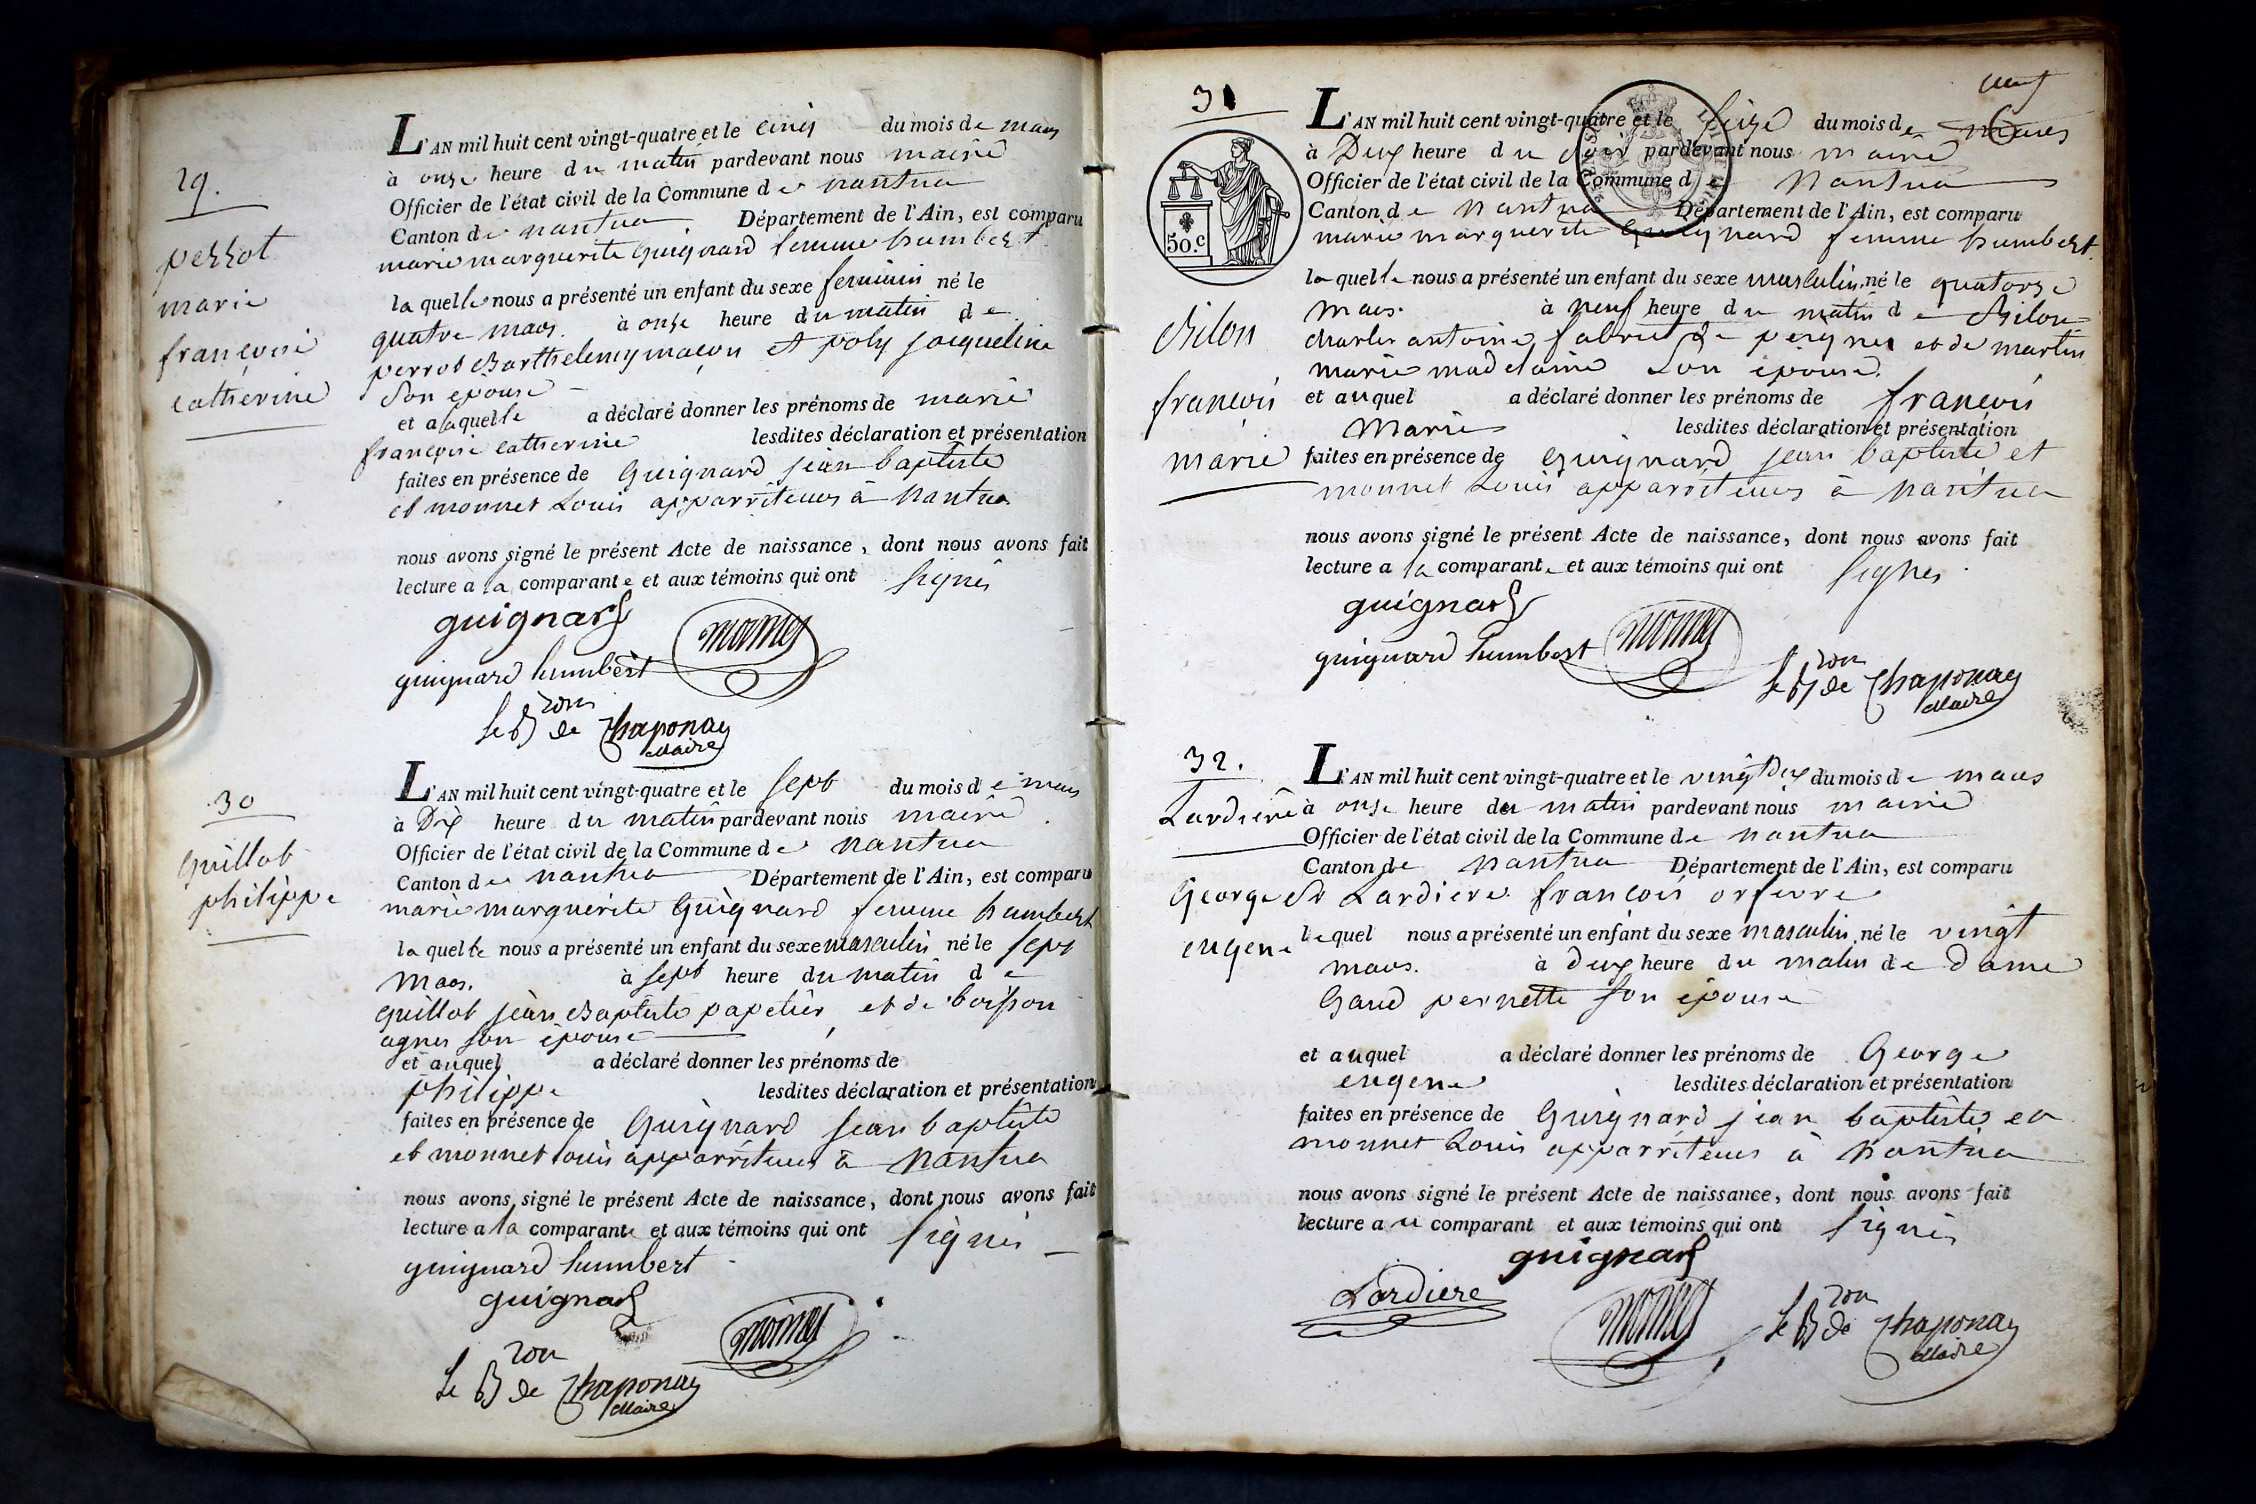 29.
perrot
marie
françoise
catherine
L'AN mil huit cent vingt-quatre et le cinq du mois de mars
à onze heure du matin pardevant nous maire
Officier de l'état civil de la Commune de nantua
Canton de nantua Département de l'Ain, est comparu
marie marguerite Guignard femme humbert
la quelle nous a présenté un enfant du sexe feminin né le
quatre mars. à onze heure du matin de
perrot Barthelemy maçon et poly jacqueline
son epouse
et a laquelle a déclaré donner les prénoms de marie
françoise catherine lesdites déclaration et présentation
faites en présence de Guignard jean baptiste
et monnet Louis apparriteurs à nantua
nous avons signé le présent Acte de naissance, dont nous avons fait
lecture a la comparante et aux témoins qui ont signés
guignard
guignard humbert monnet
le Bron de Chaponay
Maire
30
Guillot
philippe
L'AN mil huit cent vingt-quatre et le sept du mois de mars
à Dix heure du matin pardevant nous maire
Officier de l'état civil de la Commune de nantua
Canton de nantua Département de l'Ain, est comparu
marie marguerite Guignard femme humbert
la quelle nous a présenté un enfant du sexe masculin né le sept
mars. à sept heure du matin de
guillot jean Baptiste papetier et de boisson
agnes son epouse
et auquel a déclaré donner les prénoms de
philippe lesdites déclaration et présentation
faites en présence de Guignard jean baptiste
et monnet louis apparriteurs à nantua
nous avons signé le présent Acte de naissance, dont nous avons fait
lecture a la comparante et aux témoins qui ont signés
guignard humbert
guignard
monnet
le Bron de Chaponay
Maire
neuf
31
50.c
Bilon
françois
marie
L'AN mil huit cent vingt-quatre et le seize du mois de mars
à Deux heure du soir pardevant nous maire
Officier de l'état civil de la Commune de Nantua
Canton de Nantua Département de l'Ain, est comparu
marie marguerite Guignard femme humbert.
la quelle nous a présenté un enfant du sexe masculin né le quatorze
mars. à neuf heure du matin de Bilon
charles antoine fabrict de peignes et de martin
marie madelaine son epouse.
et auquel a déclaré donner les prénoms de françois
Marie lesdites déclaration et présentation
faites en présence de guignard jean baptiste et
monnet Louis apparriteurs à nantua
nous avons signé le présent Acte de naissance, dont nous avons fait
lecture a la comparante et aux témoins qui ont signés
guignard
guignard humbert monnet
le Bron de Chaponay
Maire
32.
Lardiere
George
eugene
L'AN mil huit cent vingt-quatre et le vingt Deux du mois de mars
à onze heure du matin pardevant nous maire
Officier de l'état civil de la Commune de nantua
Canton de nantua Département de l'Ain, est comparu
Sr Lardiere françois orfevre
lequel nous a présenté un enfant du sexe masculin né le vingt
mars. à Deux heure du matin de Dame
Gaud pernette son épouse
et auquel a déclaré donner les prénoms de George
eugene lesdites déclaration et présentation
faites en présence de Guignard jean baptiste et
monnet Louis apparriteurs à nantua
nous avons signé le présent Acte de naissance, dont nous avons fait
lecture au comparant et aux témoins qui ont signés
guignard
Lardiere monnet le Bron de Chaponay
Maire